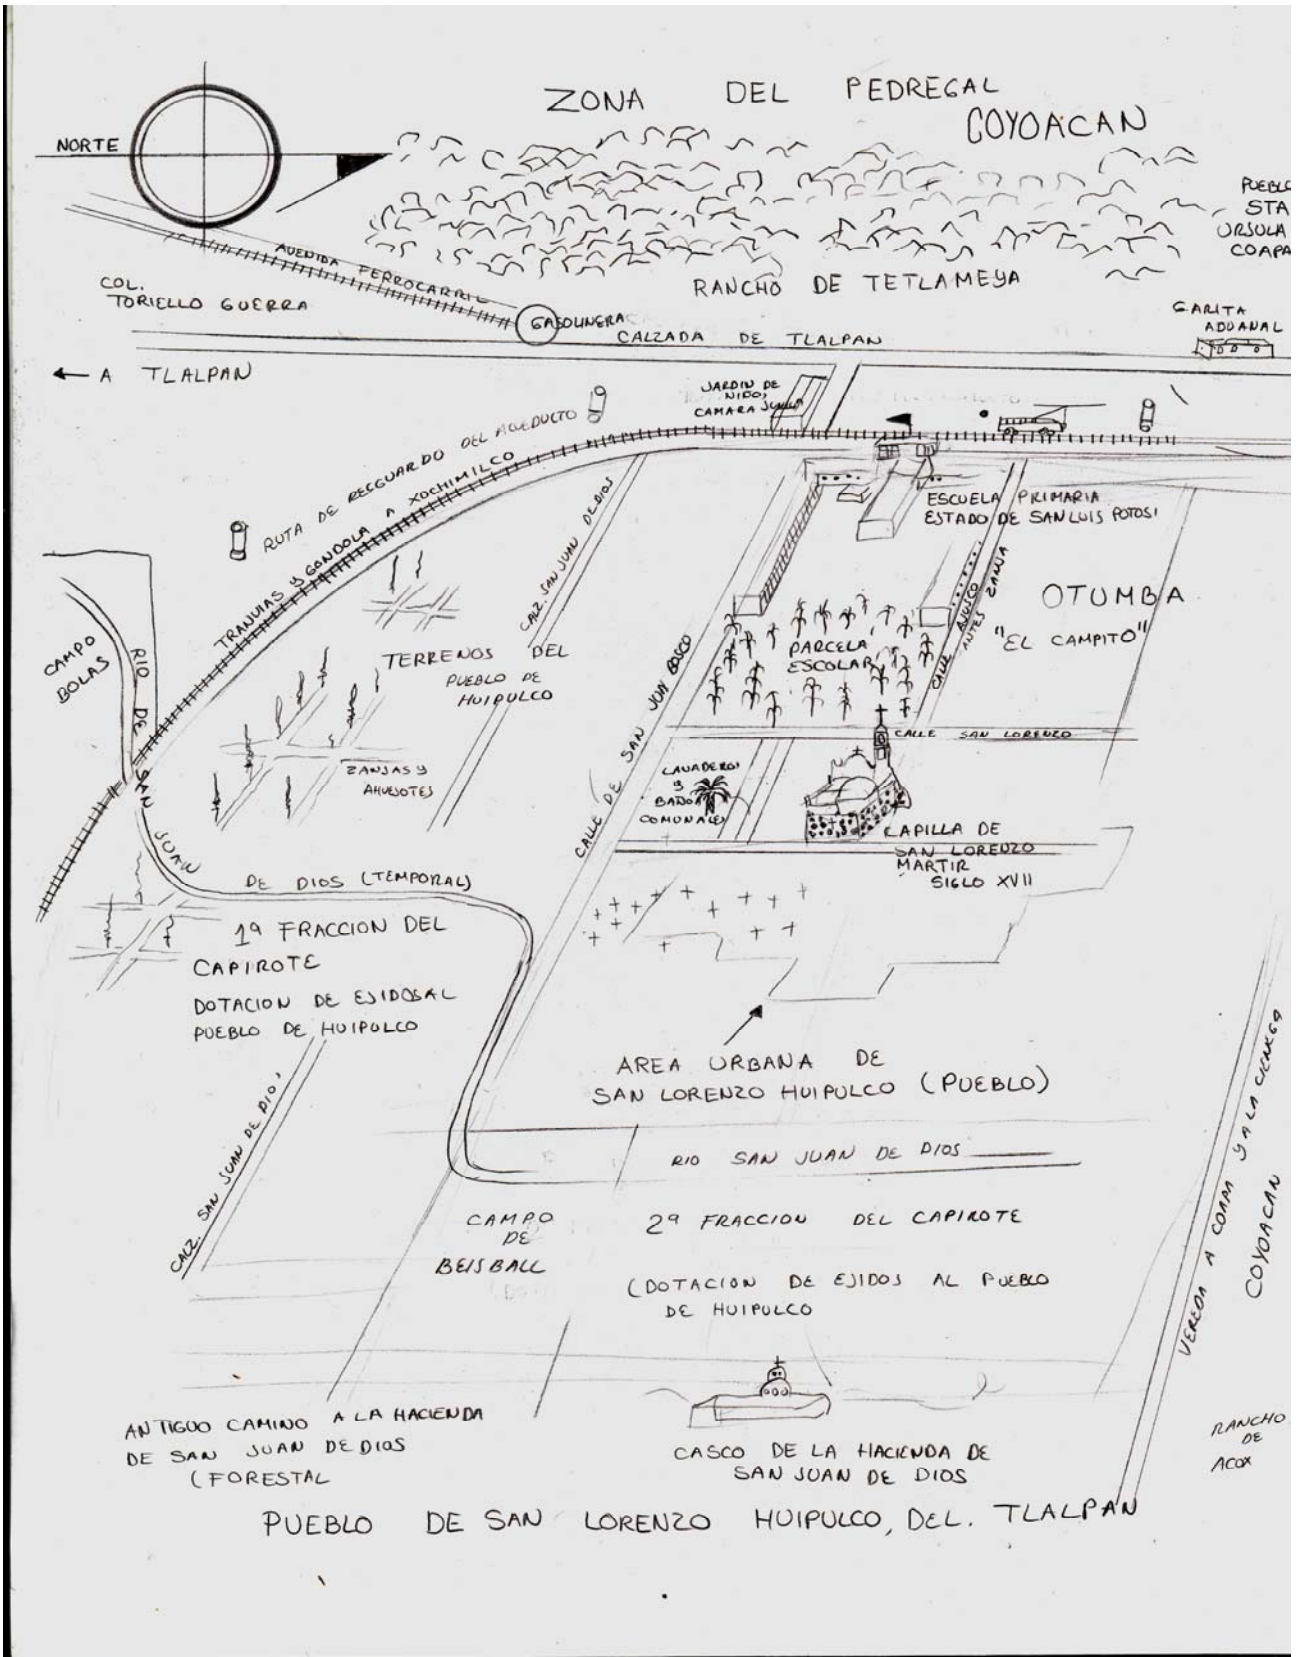 ZONA DEL PEDREGAL
COYOACAN
NORTE
PUEBLO
STA
URSULA
COAPA
AVENIDA FERROCARRIL
COL.
TORIELLO GUERRA
RANCHO DE TETLAMEYA
GASOLINERA
CALZADA DE TLALPAN
GARITA
ADUANAL
← A TLALPAN
JARDIN DE
NIÑOS
CAMARA JUNIOR
RUTA DE RECGUARDO DEL ACUEDUCTO
TRANVIAS Y GONDOLA A XOCHIMILCO
CALZ. SAN JUAN DE DIOS
ESCUELA PRIMARIA
ESTADO DE SAN LUIS POTOSI
CAMPO
BOLAS
RIO DE SAN JUAN
DE DIOS (TEMPORAL)
TERRENOS DEL
PUEBLO DE
HUIPULCO
PARCELA
ESCOLAR
CALLE AJUSCO
ANTES ZANJA
OTUMBA
"EL CAMPITO"
CALLE DE SAN JUAN BOSCO
CALLE SAN LORENZO
ZANJAS Y
AHUEJOTES
LAVADEROS
Y
BAÑOS
COMUNALES
CAPILLA DE
SAN LORENZO
MARTIR
SIGLO XVII
1ª FRACCION DEL
CAPIROTE
DOTACION DE EJIDOS AL
PUEBLO DE HUIPULCO
AREA URBANA DE
SAN LORENZO HUIPULCO (PUEBLO)
CALZ. SAN JUAN DE DIOS
RIO SAN JUAN DE DIOS
CAMPO
DE
BEISBALL
2ª FRACCION DEL CAPIROTE
(DOTACION DE EJIDOS AL PUEBLO
DE HUIPULCO
VEREDA A COAPA Y A LA CIENEGA
COYOACAN
ANTIGUO CAMINO A LA HACIENDA
DE SAN JUAN DE DIOS
(FORESTAL
CASCO DE LA HACIENDA DE
SAN JUAN DE DIOS
RANCHO
DE
ACOX
PUEBLO DE SAN LORENZO HUIPULCO, DEL. TLALPAN